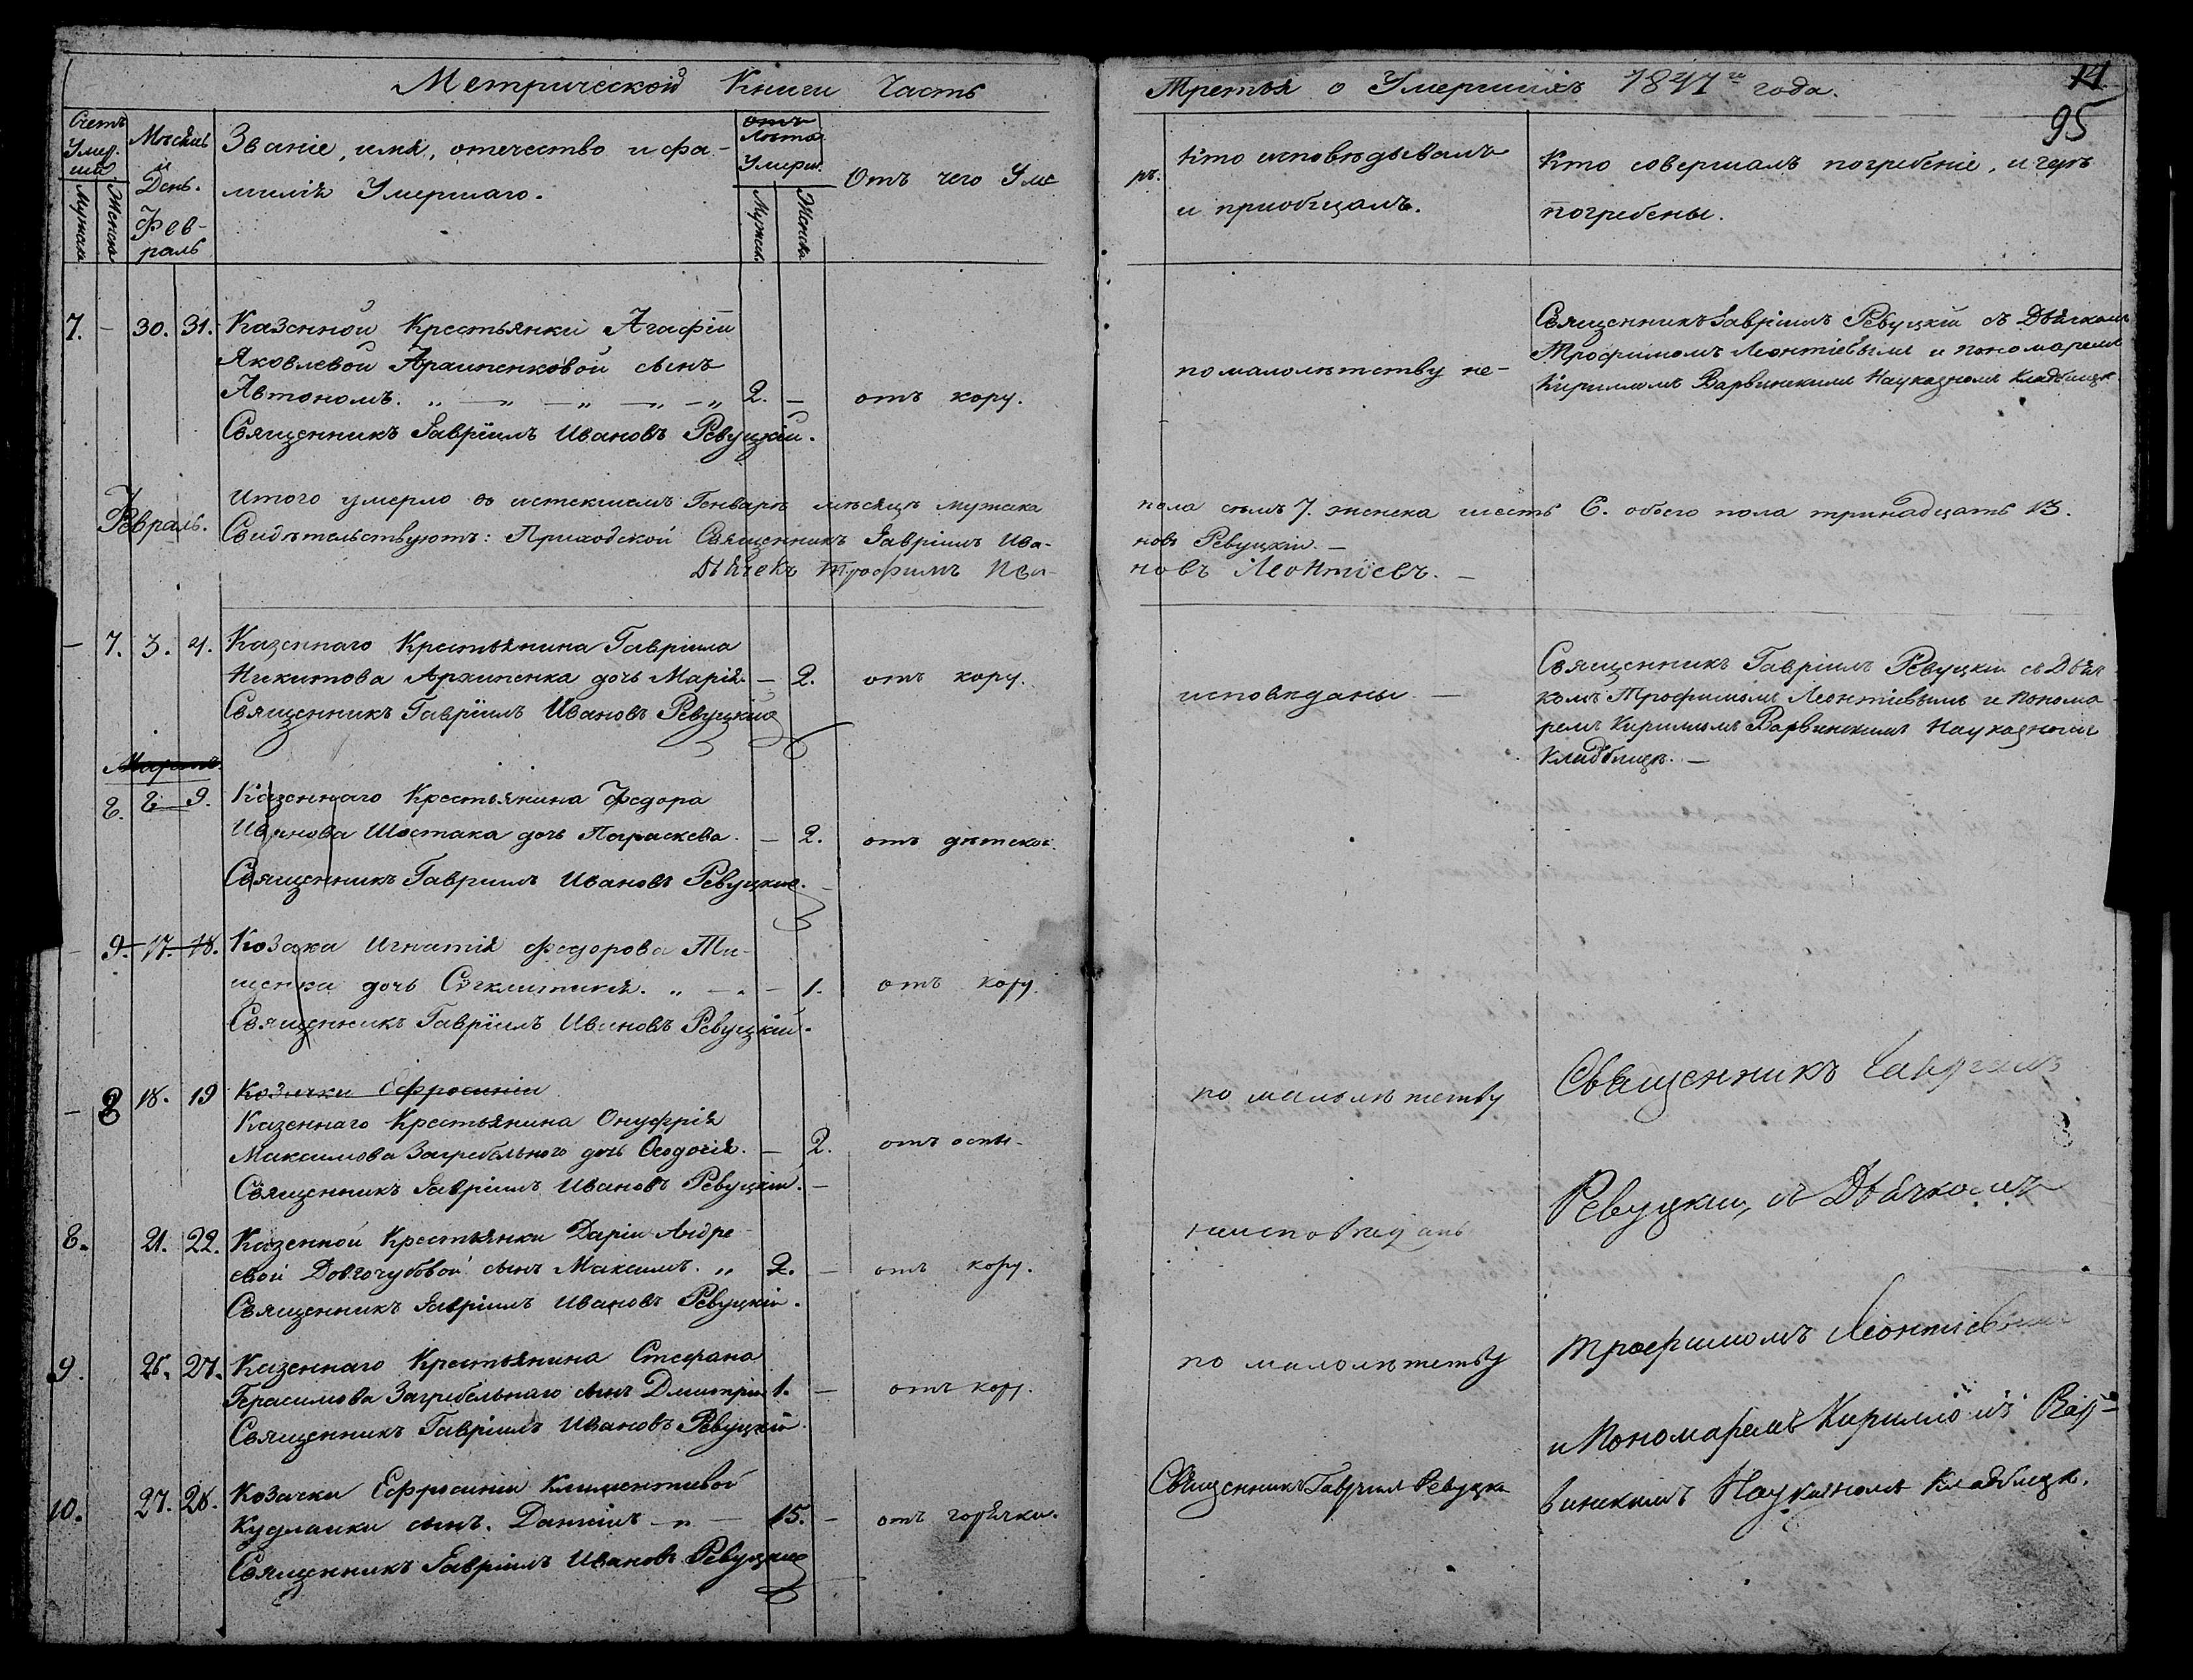 Метрической Книги Часть
Третья о Умершихъ 1847го года.
14
95
Счетъ Умерши
Мужска
Женска
Мѣсяцъ
и
День.
Фев-
раль
Званіе, имя, отечество и фа-
милія Умершаго.
Лѣта
Умерш.
Мужск.
Женска
Отъ чего Уме
ръ.
Кто исповѣдывалъ
и пріобщалъ.
Кто совершалъ погребеніе, и гдѣ
погребены.
7. - 30. 31. Казенной Крестьянки Агафіи
Яковлевой Архипенковой сынъ
Автономъ. 2. - отъ кору.
Священникъ Гавріилъ Ивановъ Ревуцкій.
по малолѣтству не-
Священникъ Гавріилъ Ревуцкій съ Дьячкомъ
Трофимомъ Леонтіевымъ и пономаремъ
Кирилломъ Варвинскимъ На указномъ Кладбищѣ
Февраль.
Итого умерло въ истекшемъ Генварѣ мѣсяцѣ мужска
пола семь 7. женска шесть 6. обоего пола тринадцать 13.
Свидѣтельствуютъ: Приходской Священникъ Гавріилъ Ива-
новъ Ревуцкій. —
Дьячекъ Трофимъ Ива-
новъ Леонтіевъ. —
- 7. 3. 4. Казеннаго Крестьянина Гавріила
Никитова Архипенка дочь Марія. — 2. отъ кору.
Священникъ Гавріилъ Ивановъ Ревуцкій
исповѣданы —
Священникъ Гавріилъ Ревуцкій съ Дьяч
комъ Трофимомъ Леонтіевымъ и понома
ремъ Кирилломъ Варвинскимъ На указномъ
Кладбищѣ. —
Мартъ.
8. 8 9. Казеннаго Крестьянина Федора
Иванова Шостака дочь Параскева. — 2. отъ дѣтской.
Священникъ Гавріилъ Ивановъ Ревуцкій.
- 9. 17. 18. Козака Игнатія Федорова Ти-
щенка дочь Сигклитикія. — 1. отъ кору.
Священникъ Гавріилъ Ивановъ Ревуцкій.
- 8 18. 19 Козачки Ефросиніи
Казеннаго Крестьянина Онуфрія
Максимова Загребельного дочь Ѳеодосія. — 2. отъ оспы.
Священникъ Гавріилъ Ивановъ Ревуцкій. —
по малолѣтству
Священникъ Гавріилъ
8. 21. 22. Казенной Крестьянки Даріи Андре
евой Довгочубовой сынъ Максимъ. „ 2. — отъ кору.
Священникъ Гавріилъ Ивановъ Ревуцкій.
Ревуцкій, съ Дьячкомъ
9. 26. 27. Казеннаго Крестьянина Стефана
Герасимова Загребельнаго сынъ Дмитрій 1. — отъ кору.
Священникъ Гавріилъ Ивановъ Ревуцкій
по малолѣтству
Трофимомъ Леонтіевымъ
и Пономаремъ Кирилломъ Вар-
10. 27. 28. Козачки Ефросиніи Климентіевой
сынъ. Даніилъ — 15. - отъ горячки.
Священникъ Гавріилъ Ивановъ Ревуцкій
Священникъ Гавріилъ Ревуцкій
винскимъ На указномъ Кладбищѣ.